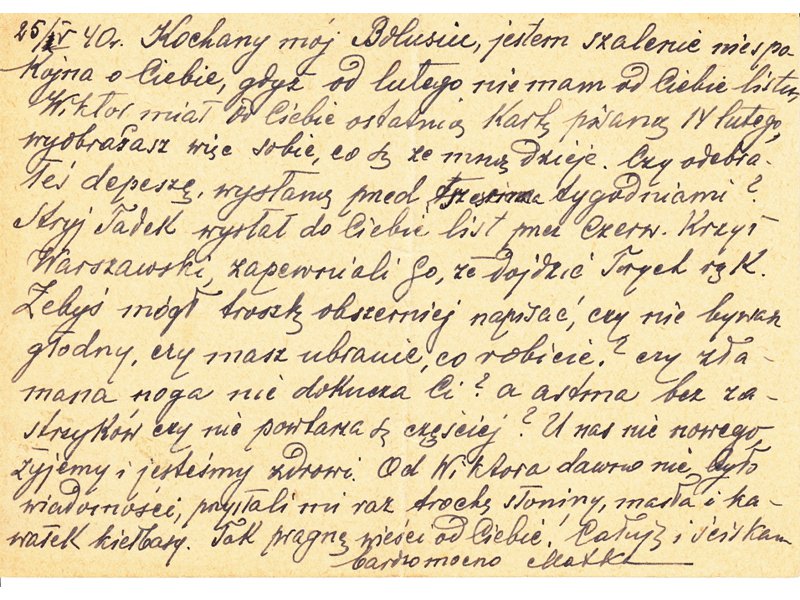 25/IV 40r. Kochany mój Bolusiu, jestem szalenie niespo
kojna o Ciebie, gdyż od lutego nie mam od Ciebie listu,
Wiktor miał od Ciebie ostatnią kartkę pisaną 14 lutego,
wyobrażasz więc sobie, co się ze mną dzieje. Czy odebra-
łeś depeszę, wysłaną przed trzema tygodniami?
Stryj Tadek wysłał do Ciebie list przez Czerw. Krzyż
Warszawski, zapewniali Go, że dojdzie Twych rąk.
Żebyś mógł troszkę obszerniej napisać, czy nie bywasz
głodny, czy masz ubranie, co robicie? czy zła-
mana noga nie dokucza Ci? a astma bez za-
strzyków czy nie powtarza się częściej? U nas nic nowego,
żyjemy i jesteśmy zdrowi. Od Wiktora dawno nie było
wiadomości, przysłali mi raz trochę słoniny, masła i ka-
wałek kiełbasy. Tak pragnę wieści od Ciebie. Całuję i ściskam
bardzo mocno Matka